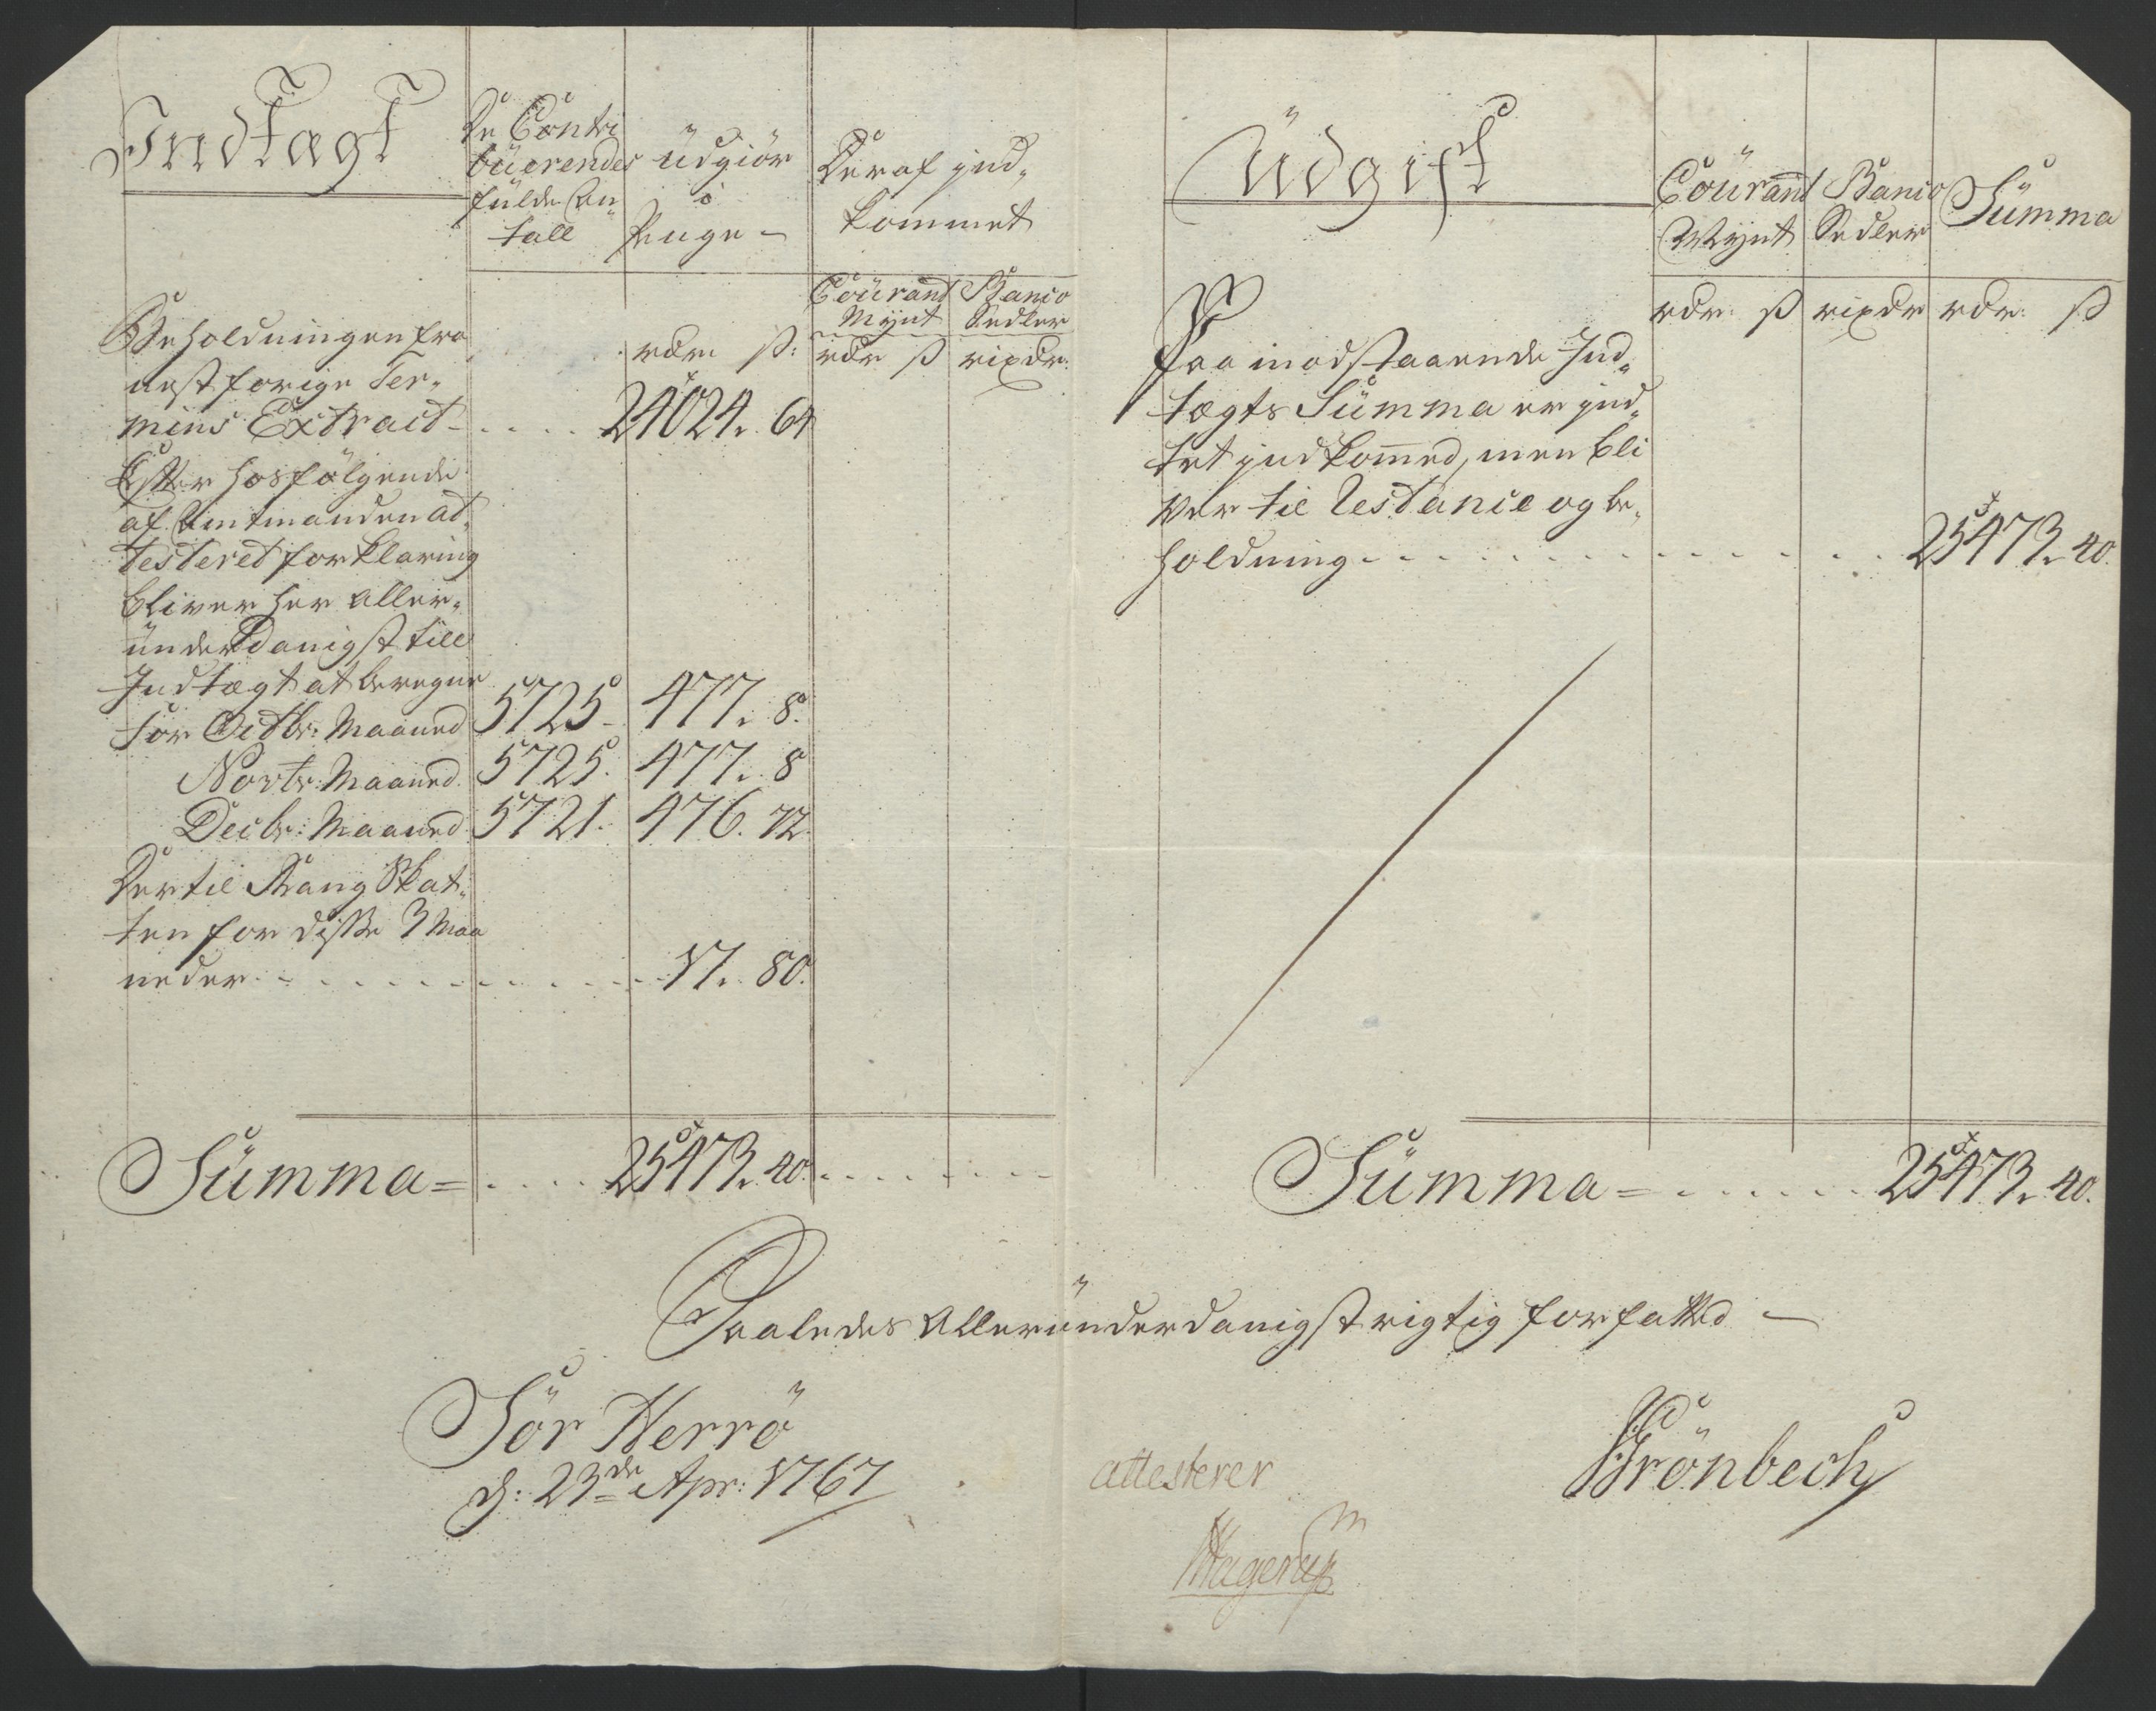 Indtagt
De Contri
buerendes
fulde An
tall
udgiør
i
Penge –
Deraf ind„
kommet
Courant
Mynt
Banco
Sedler
rdr: ß:
rdr ß
rixdr:
Beholdningen fra
nest forige Ter„
mins Extract – . . . . 24024. 64
Efter hosfølgende
af Amtmanden at„
testeret forklaring
bliver her aller„
underdanigst till
Indtægt at beregne
for Octbr: Maaned 5725 – 477. 8.
Novbr: Maaned 5725. 477. 8
Decbr: Maaned 5721. 476. 72.
Dertil Rang Skat„
ten for disse 3 Maa
neder . . . . . . . . . . 17. 80.
Summa = . . . . 25473. 40. . . . . . . .
Udgift
Courant
Mynt
Banco
Sedler
Summa
rdr: ß
rixdr
rdr: ß
Paa modstaaende Ind„
tægts Summa er ind„
tet indkommed, men bli
ver til Restance og be„
holdning . . . . . . . . . . . . 25473. 40.
Summa = . . . . . . 25473. 40.
Saaledes Allerunderdanigst rigtig forfatted –
Sör Herrö
d: 23de Apr: 1767
attesterer
Hagerup
Grönbech